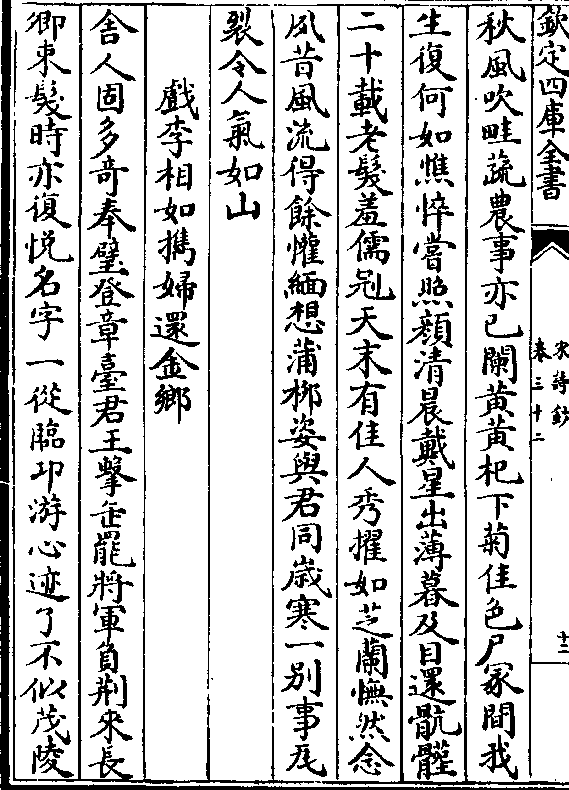 欽定四庫全書
宋詩鈔
卷三十二
十二
秋風吹畦蔬農事亦已闌黄黄杞下菊佳色尸冢間我
生復何如憔悴嘗照顔清晨戴星出薄暮及日還骯髒
二十載老髮羞儒冠天末有佳人秀擢如芝蘭憮然念
夙昔風流得餘懽緬想蒲桺姿與君同歳寒一别事瓦
裂令人氣如山
戲李相如擕婦還金鄉
舍人固多奇奉璧登章臺君王擊缶罷將軍負荆來長
卿束髮時亦復悦名字一從臨卭游心迹了不似茂陵